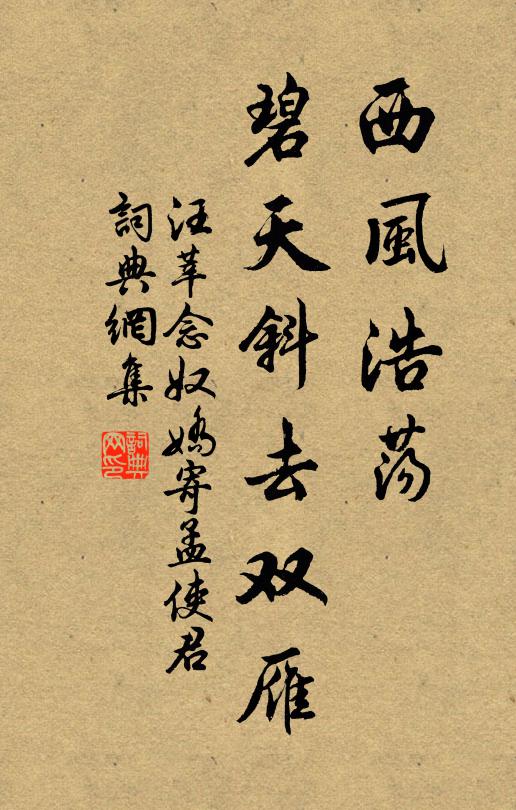 西風浩蕩
碧天斜去双雁
汪莘念奴嬌寄孟使君
詞典網集
詞典网印